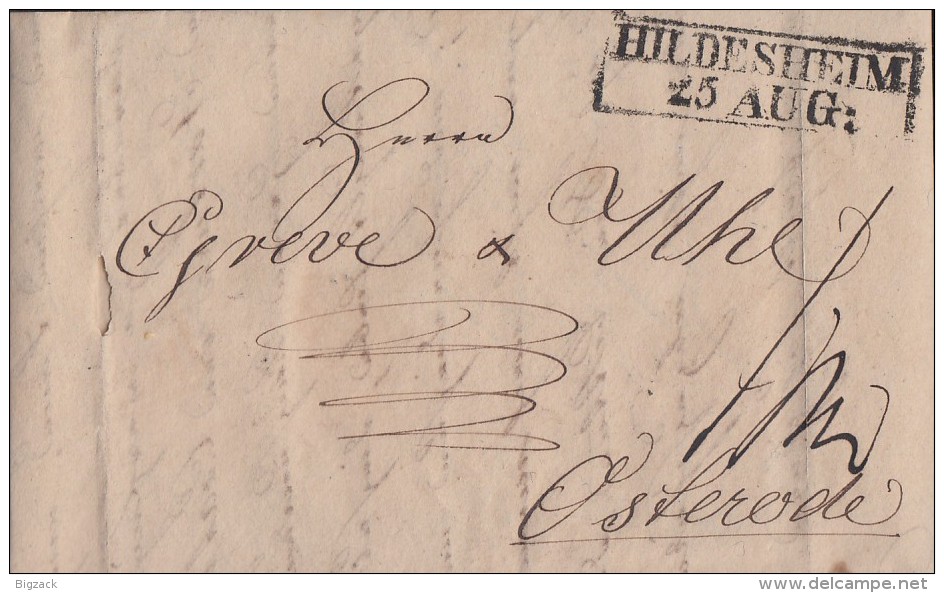 HILDESHEIM
25 AUG:
Herrn
Greve & Uhe
Osterode
Bigzack
delcampe.net